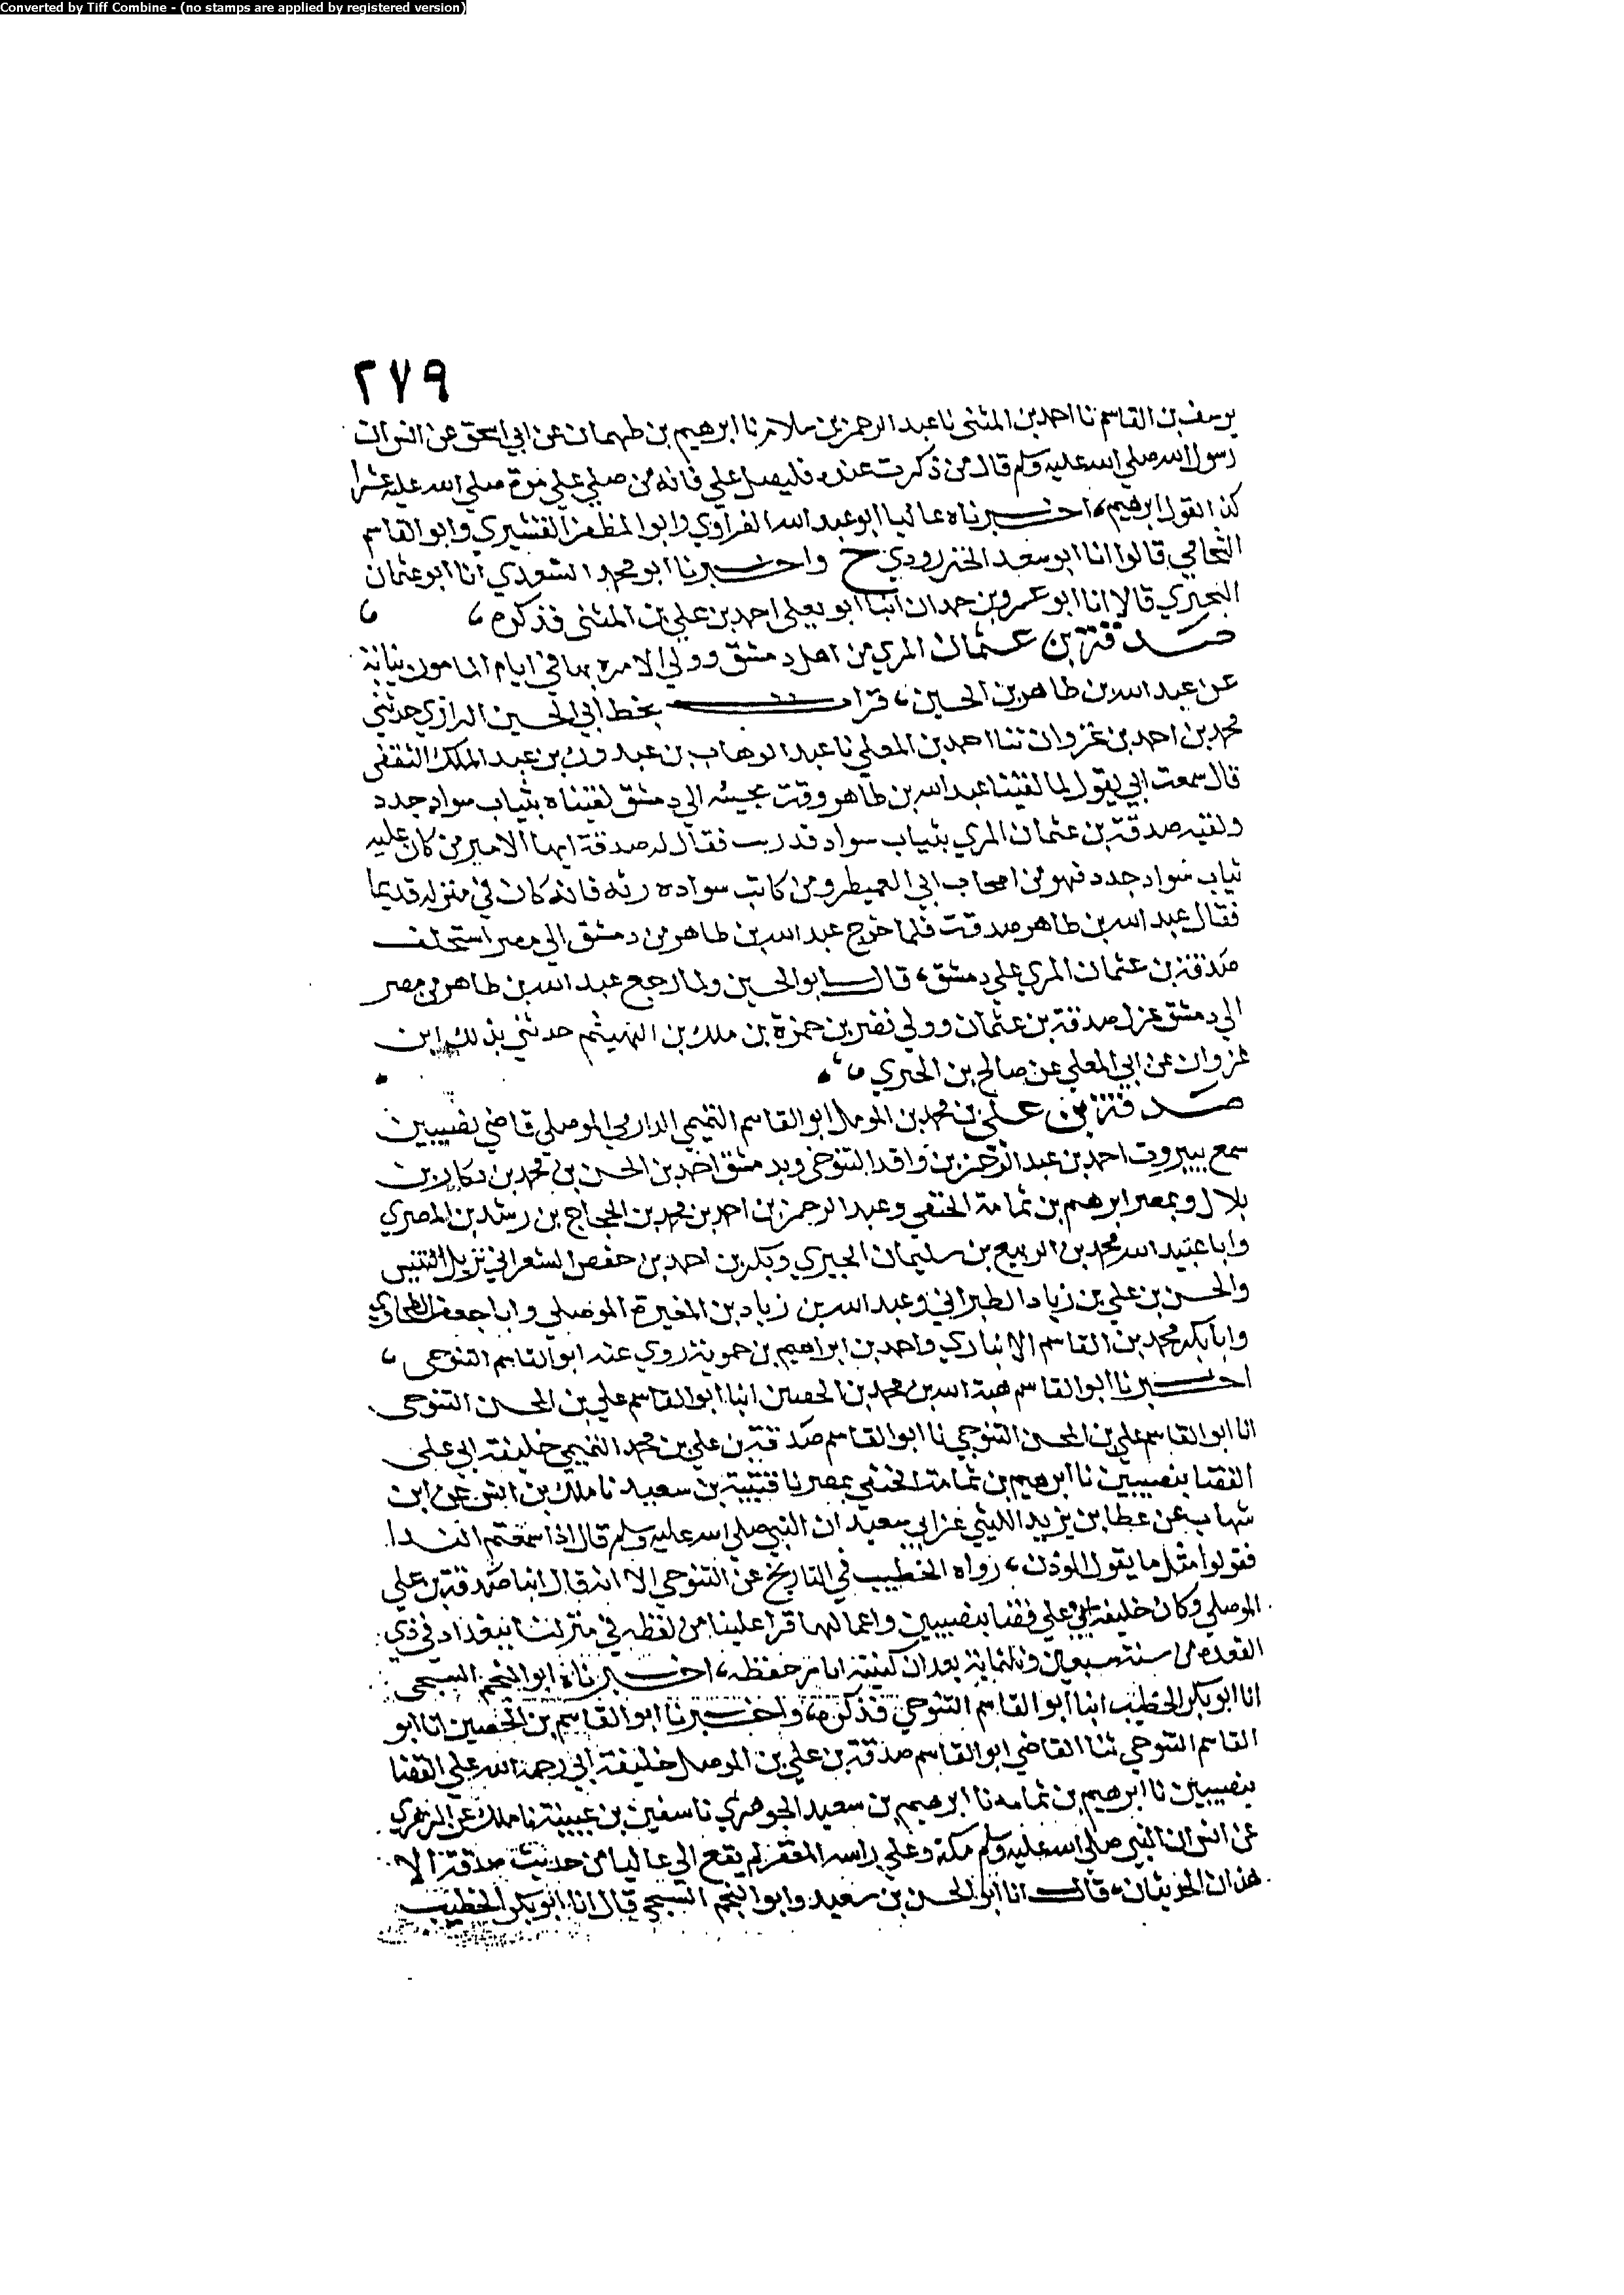 Converted by Tiff Combine - (no stamps are applied by registered version)
٢٧٩
يوسف بن القاسم نا احمد بن المثنى نا عبد الرحمن بن سلام نا ابرهيم بن طهمان عن ابي اسحق عن انس ان
رسول الله صلى الله عليه وسلم قال من ذكرت عنده فليصل علي فانه من صلى علي مرة صلى الله عليه عشرا
كذا يقول ابرهيم، اخبرناه عاليا ابو عبد الله الفراوي وابو المظفر القشيري وابو القاسم
الشحامي قالوا انا ابو سعد الخنزرودي ح واخبرنا ابو محمد السيدي انا ابو عثمان
البحيري قالا انا ابو عمرو بن حمدان انبا ابو يعلى احمد بن علي بن المثنى فذكره،
صدقة بن عثمان المري من اهل دمشق وولي الامره بها في ايام المامون نيابة
عن عبد الله بن طاهر بن الحسين، قرات بخط ابي الحسين الرازي حدثني
محمد بن احمد بن غزوان ثنا احمد بن المعلى نا عبد الوهاب بن عبد ون بن عبد الملك الثقفي
قال سمعت ابي يقول لما لقينا عبد الله بن طاهر وقت مجيئه الى دمشق لقيناه بثياب سواد جدد
ولقيه صدقة بن عثمان المري بثياب سواد قد ربت فقال له صدقة ايها الامير من كان عليه
ثياب سواد جدد فهو من اصحاب ابي العميطر ومن كانت سواده رثه فانه كان في منزله قديما
فقال عبد الله بن طاهر صدقت فلما خرج عبد الله بن طاهر من دمشق الى مصر استخلف
صدقة بن عثمان المري على دمشق، قال ابو الحسين ولما رجع عبد الله بن طاهر من مصر
الى دمشق عزل صدقة بن عثمان وولي نصر بن حمزة بن ملك بن الهيثم حدثني بذلك ابن
غزوان عن ابي المعلى عن صالح بن البحتري
صدقة بن علي بن محمد بن المومل ابو القاسم التميمي الدارمي الموصلي قاضي نصيبين
سمع ببيروت احمد بن عبد الرحمن بن واقد التنوخي وبدمشق احمد بن الحسن بن محمد بن بكار بن
بلال وبمصر ابرهيم بن ثمامة الحنفي وعبد الرحمن بن احمد بن محمد بن الحجاج بن رشد بن المصري
وابا عبيد الله محمد بن الربيع بن سليمان الجيزي وبكر بن احمد بن حفص الشعراني نزيل التنيس
والحسن بن علي بن زياد الطبراني وعبد الله بن زياد بن المغيرة الموصلي وابا جعفر الطحاوي
وابا بكر محمد بن القاسم الانباري واحمد بن ابراهيم بن حمويه روى عنه ابو القاسم التنوخي،
اخبرنا ابو القاسم هبة الله بن محمد بن الحصين انبا ابو القاسم علي بن المحسن التنوخي
انا ابو القاسم علي بن المحسن التنوخي نا ابو القاسم صدقة بن علي بن محمد التميمي خليفة ابي على
القضا بنصيبين نا ابرهيم بن ثمامة الحنفي بمصر نا قتيبة بن سعيد نا ملك بن انس عن ابن
شهاب عن عطا بن يزيد الليثي عن ابي سعيد ان النبي صلى الله عليه وسلم قال اذا سمعتم الندا
فقولوا مثل ما يقول الموذن، رواه الخطيب في التاريخ عن التنوخي الا انه قال انبا صدقة بن علي
الموصلي وكان خليفة ابي على قضا بنصيبين واعمالها قرا علينا من لفظه في منزلنا ببغداد في ذي
القعده من سنة سبعين وثلثماية بعد ان كتبته انا من حفظه، اخبرناه ابو النجم السبحي
انا ابو بكر الخطيب انبا ابو القاسم التنوخي فذكره، واخبرنا ابو القاسم بن الحصين انا ابو
القاسم التنوخي ثنا القاضي ابو القاسم صدقة بن علي بن الموصل خليفة ابي رحمه الله على القضا
بنصيبين نا ابرهيم بن ثمامه نا ابرهيم بن سعيد الجوهري نا سفين بن عيينة نا ملك عن الزهري
عن انس ان النبي صلى الله عليه وسلم مكة وعلى راسه المغفر لم يقع الي عاليا من حديث صدقة الا
هذان الحديثان، قال انا ابو الحسن بن سعيد وابو النجم السبحي قال انا ابو بكر الخطيب